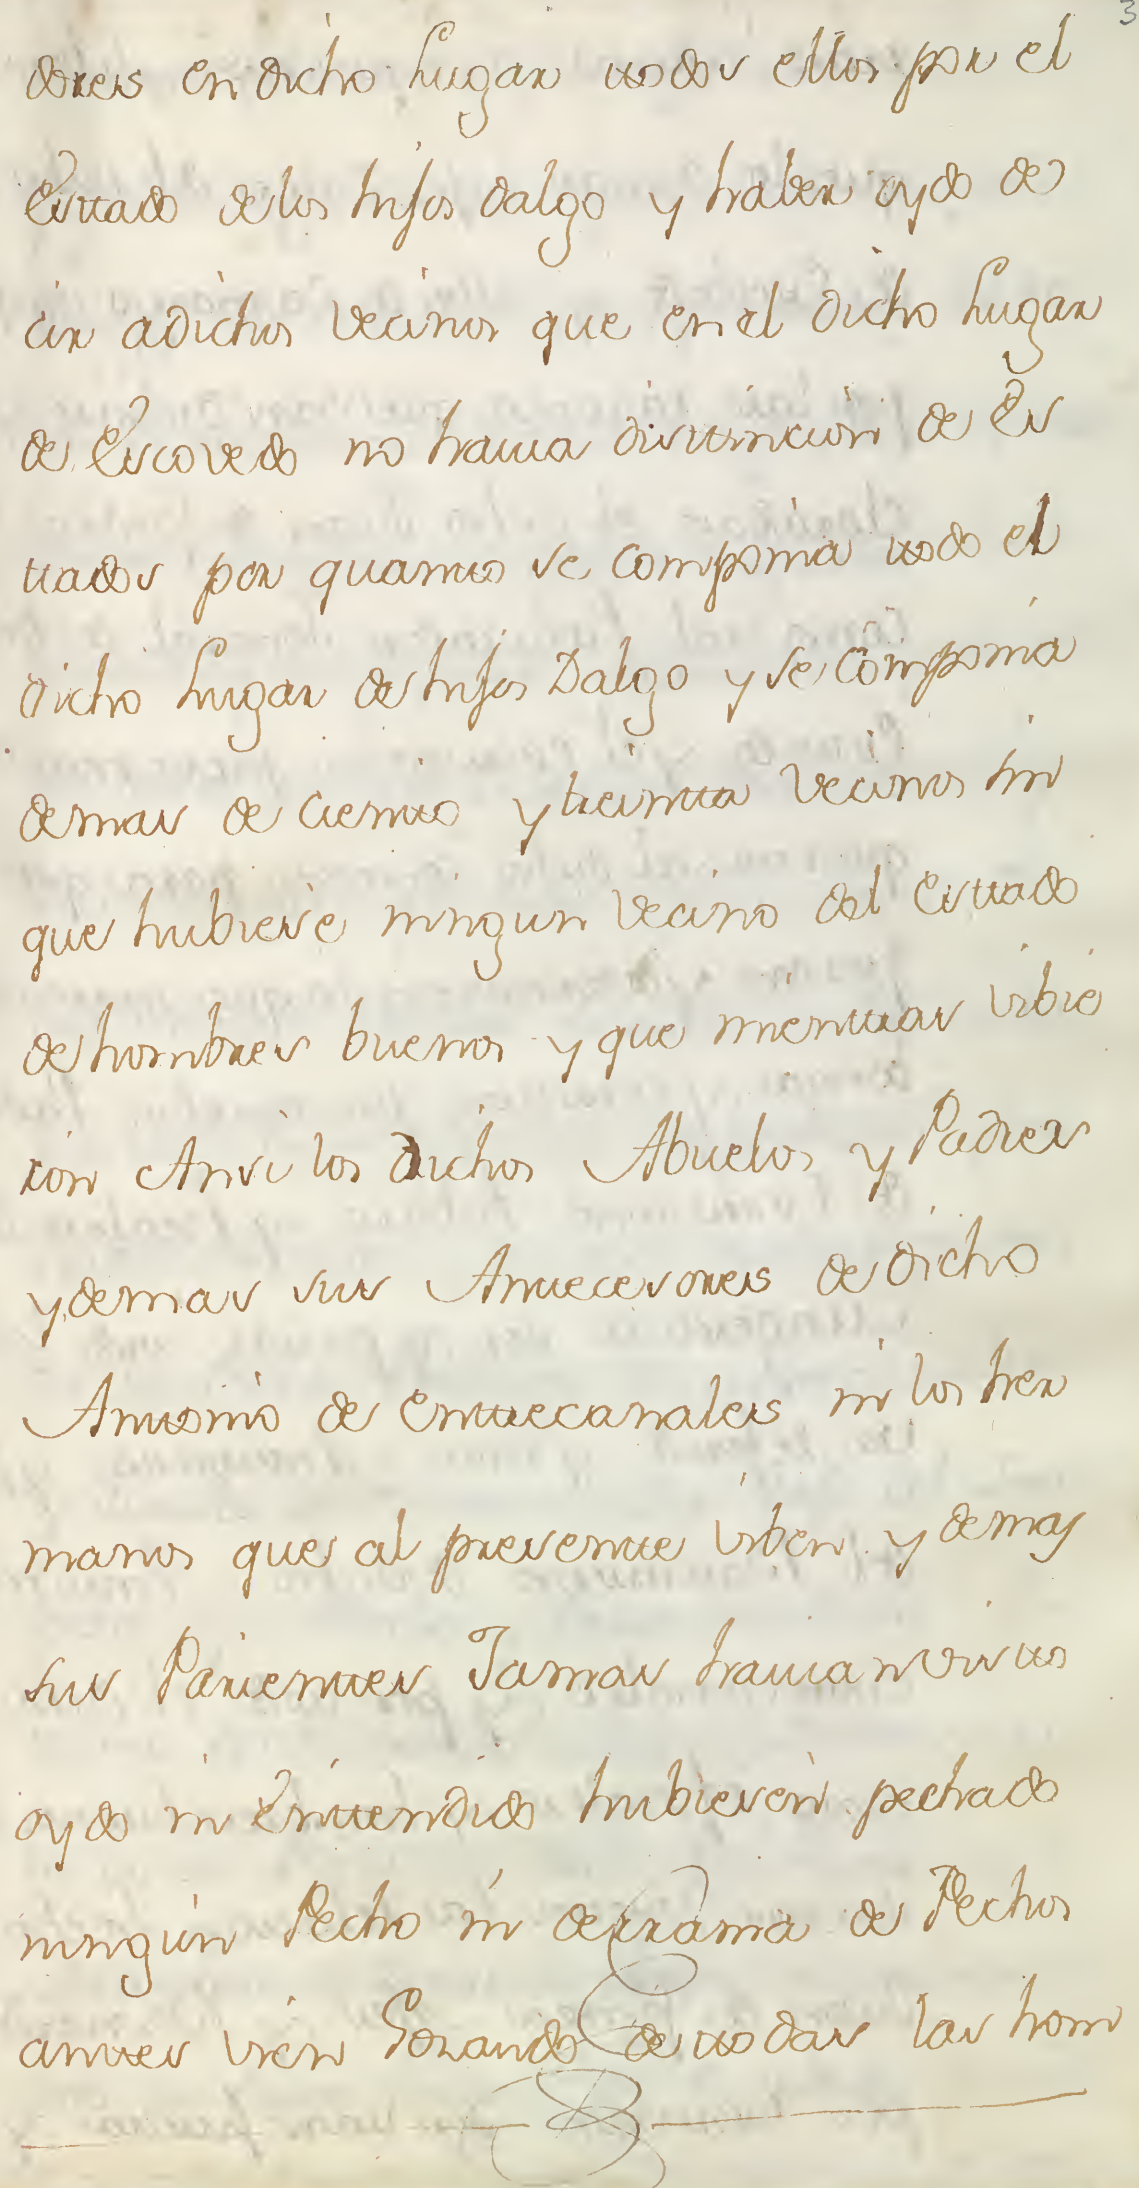 3
dores en dicho Lugar todos ellos por el
Estado de los hijos dalgo y haber oydo de
cir a dichos Vecinos que en el dicho Lugar
de Escovedo no havia distincion de Es
tados por quanto se componia todo el
dicho Lugar de hijos Dalgo y se componia
de mas de ciento y treinta Vecinos sin
que hubiese ningun Vecino del Estado
de hombres buenos y que mientras vibie
ron Ansi los dichos Abuelos y Padres
y demas sus Antecesores de dicho
Antonio de entrecanales ni los her
manos que al presente viben y demas
sus Parientes Jamas havian visto
oydo ni Entendido hubiesen pechado
ningun Pecho ni derrama de Pechos
antes vien Gozando de todas las hon